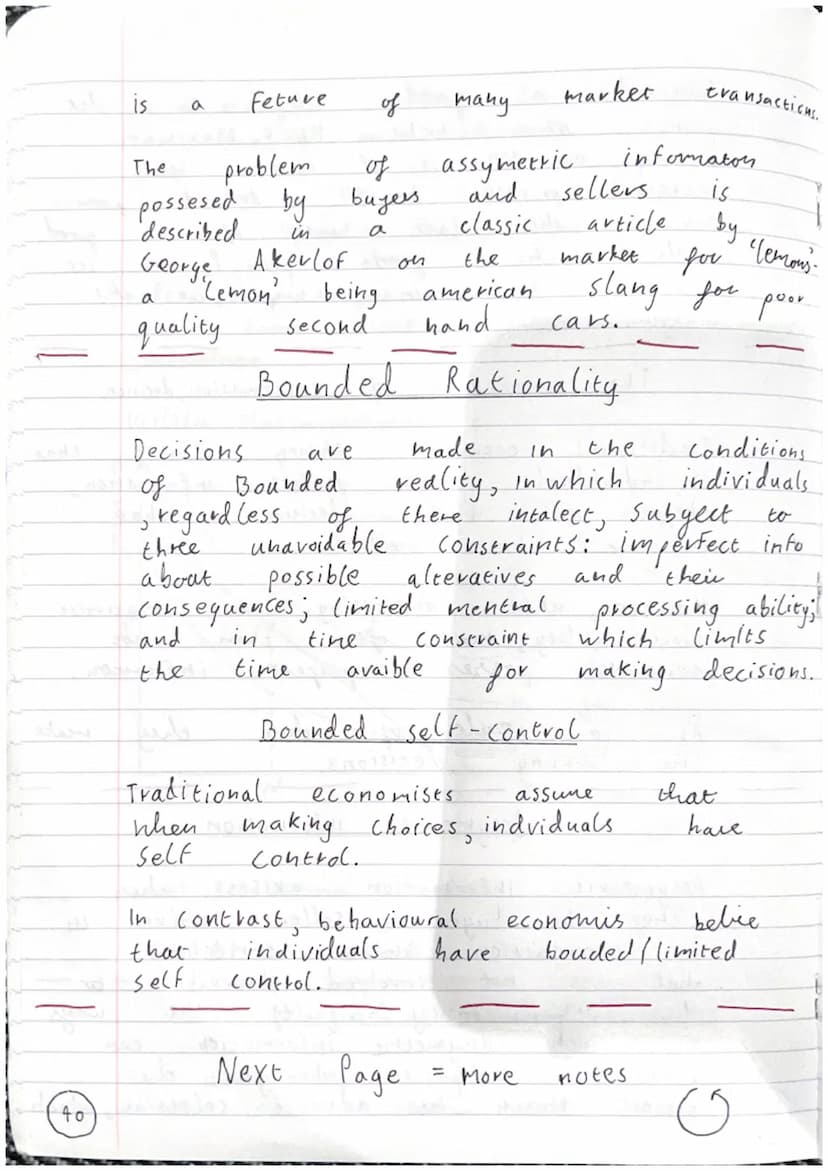 is a feture of many market transactions.
The problem of assymetric informaton
possesed by buyers and sellers is
described in a classic article by
George Akerlof on the market for 'lemons'-
a 'Lemon' being american slang for poor
quality second hand cars.
Bounded Rationality
Decisions are made in the conditions
of Bounded reality, in which individuals
, regardless of there intalect, subyect to
three unavoidable constraints: imperfect info
about possible alteratives and their
consequences; limited mentral processing ability;
and in tine constraint which limits
the time avaible for making decisions.
Bounded self-control
Traditional economists assume that
when making choices, indviduals have
self control.
In contrast, behavioural economis belie
that individuals have bouded/limited
self control.
Next Page = more notes
40